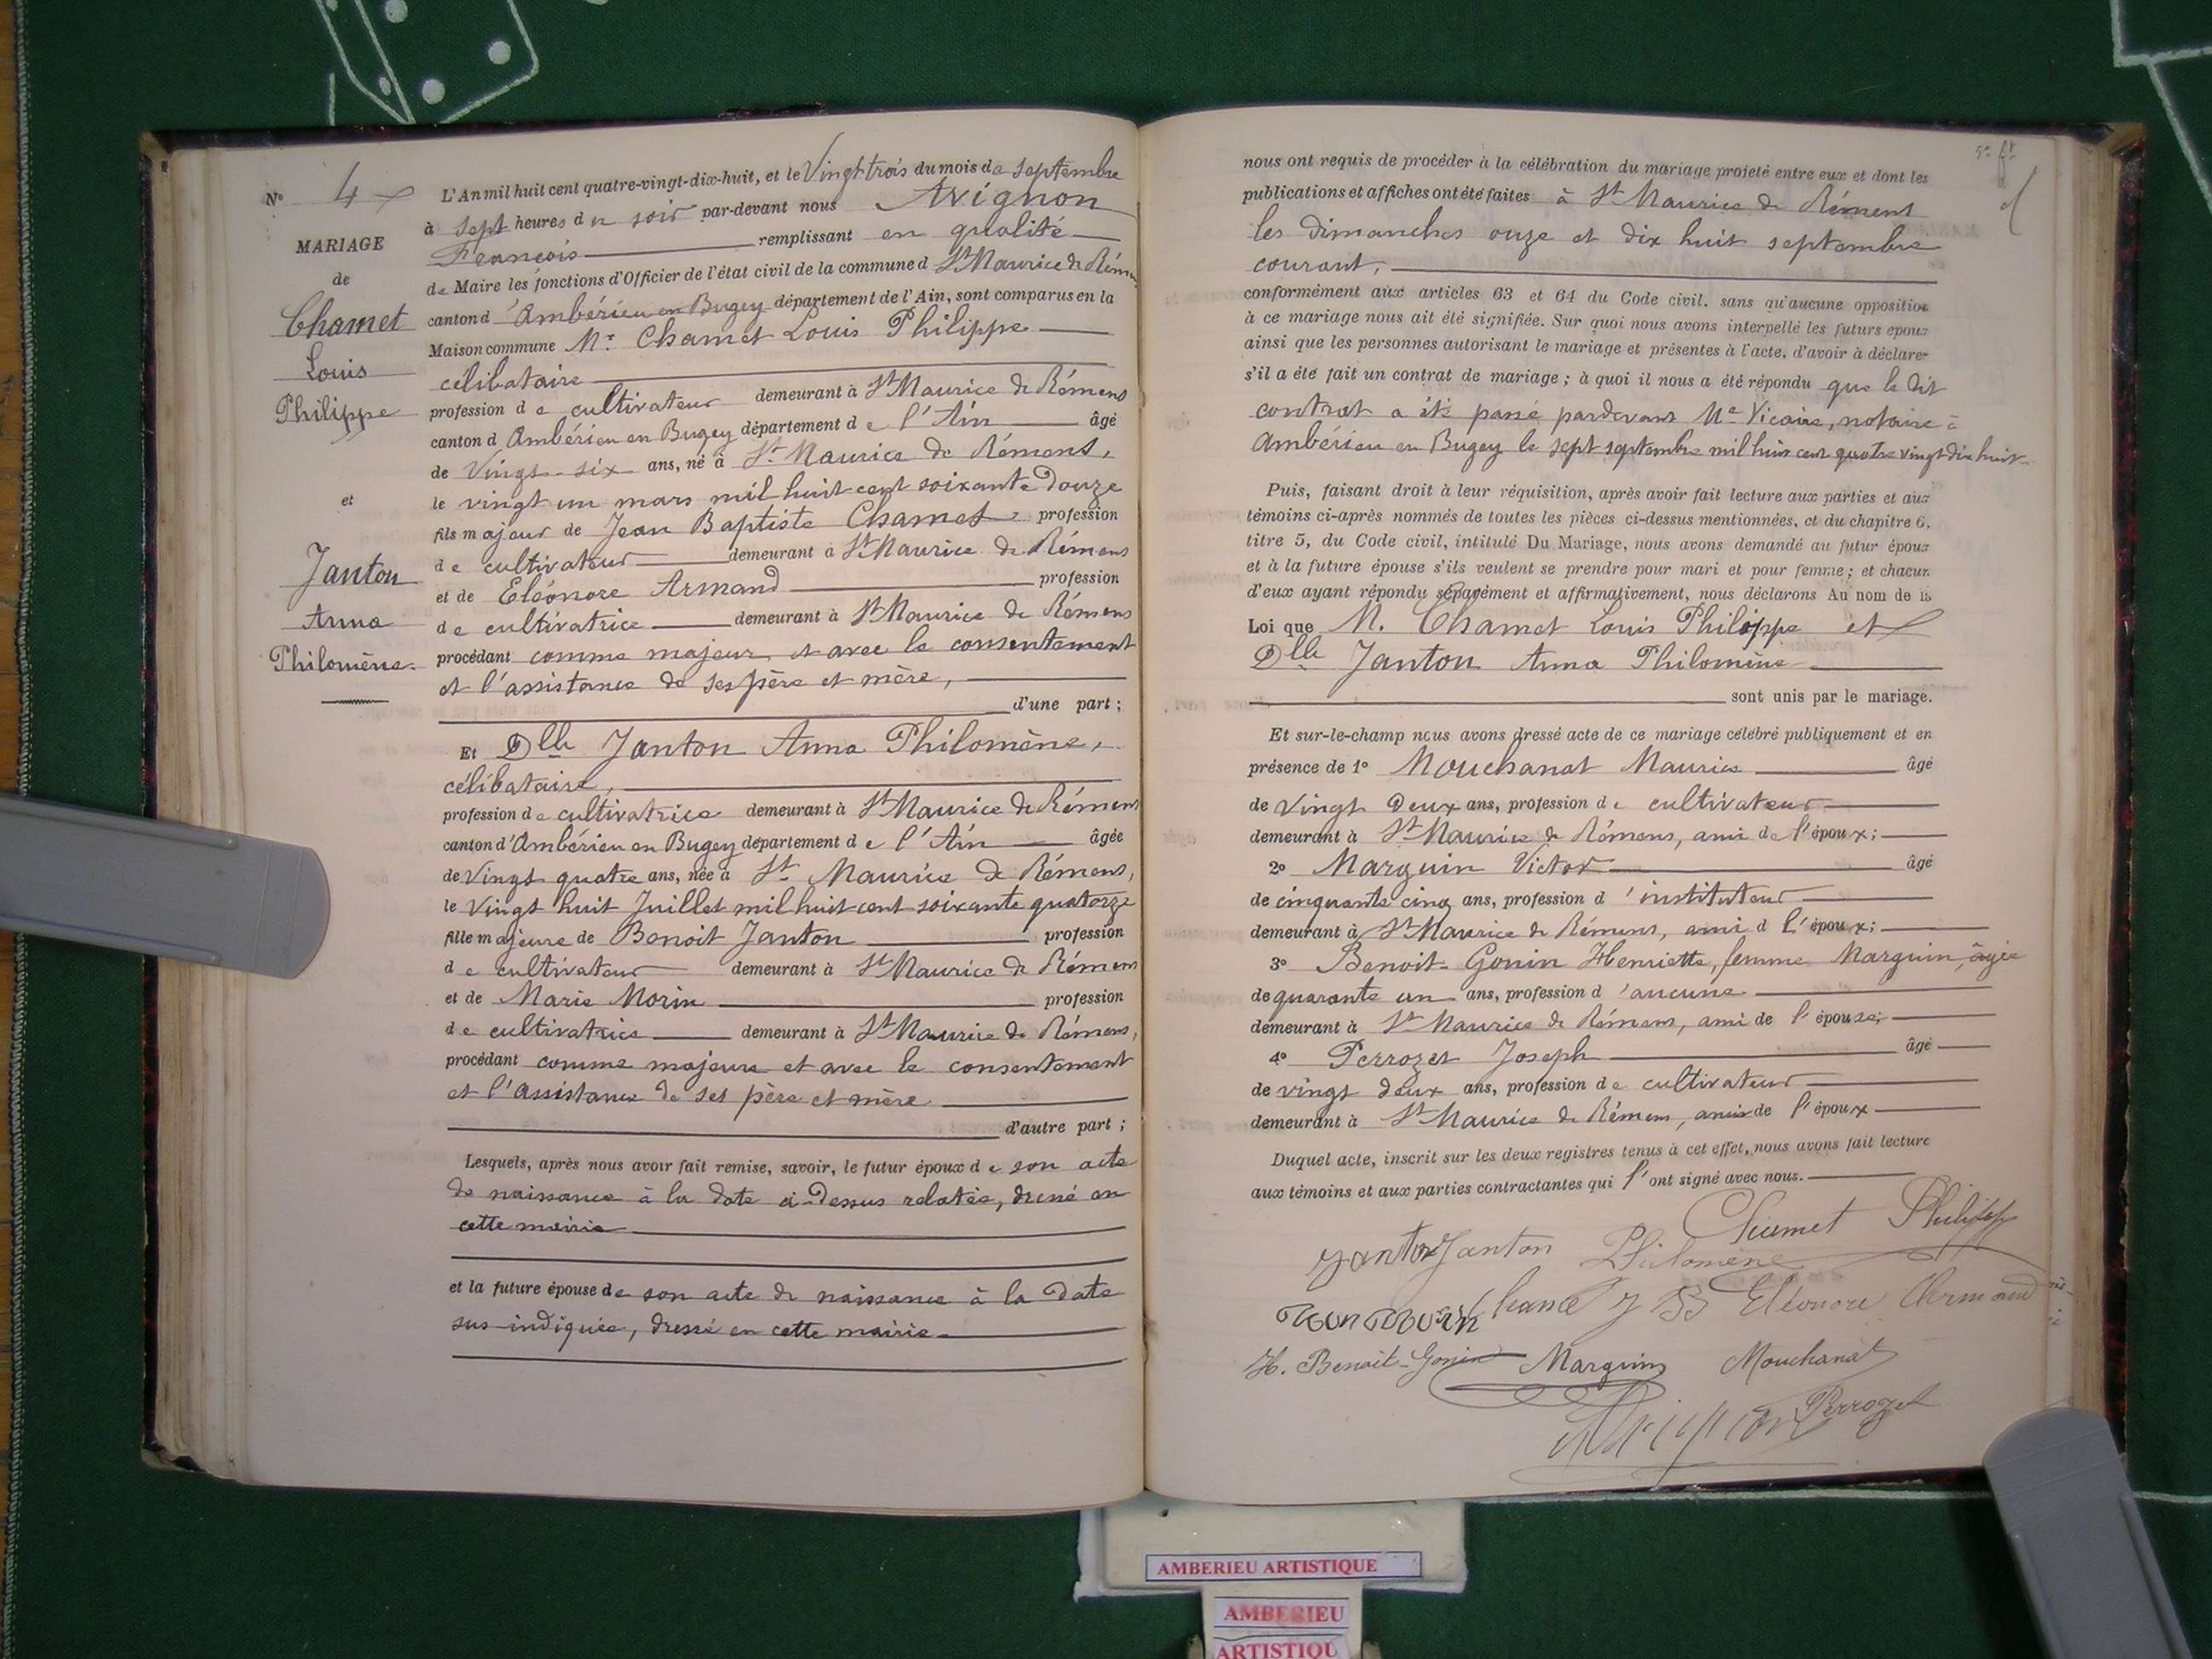 N° 4
MARIAGE
de
Chamet
Louis
Philippe
et
Janton
Anna
Philomène.
L'An mil huit cent quatre-vingt-dix-huit, et le Vingt trois du mois de septembre
à sept heures du soir par-devant nous Avignon
François remplissant en qualité
de Maire les fonctions d'Officier de l'état civil de la commune d St Maurice de Rémens
canton d'Ambérieu en Bugey département de l'Ain, sont comparus en la
Maison commune Mr. Chamet Louis Philippe
célibataire
profession de cultivateur demeurant à St Maurice de Rémens
canton d Ambérieu en Bugey département de l'Ain âgé
de Vingt six ans, né à St Maurice de Rémens,
le vingt un mars mil huit cent soixante douze
fils majeur de Jean Baptiste Chamet profession
de cultivateur demeurant à St Maurice de Rémens
et de Eléonore Armand profession
de cultivatrice demeurant à St Maurice de Rémens
procédant comme majeur et avec le consentement
et l'assistance de ses père et mère,
d'une part ;
Et Dlle Janton Anna Philomène,
célibataire,
profession de cultivatrice demeurant à St Maurice de Rémens
canton d'Ambérieu en Bugey département de l'Ain âgée
de Vingt quatre ans, née à St Maurice de Rémens,
le Vingt huit Juillet mil huit cent soixante quatorze
fille majeure de Benoit Janton profession
de cultivateur demeurant à St Maurice de Rémens
et de Marie Morin profession
de cultivatrice demeurant à St Maurice de Rémens,
procédant comme majeure et avec le consentement
et l'assistance de ses père et mère
d'autre part ;
Lesquels, après nous avoir fait remise, savoir, le futur époux de son acte
de naissance à la date ci-dessus relatée, dressé en
cette mairie
et la future épouse de son acte de naissance à la date
sus-indiquée, dressé en cette mairie.
nous ont requis de procéder à la célébration du mariage projeté entre eux et dont les
publications et affiches ont été faites à St Maurice de Rémens
les dimanches onze et dix huit septembre
courant,
conformément aux articles 63 et 64 du Code civil. sans qu'aucune opposition
à ce mariage nous ait été signifiée. Sur quoi nous avons interpellé les futurs epoux
ainsi que les personnes autorisant le mariage et présentes à l'acte, d'avoir à déclarer
s'il a été fait un contrat de mariage ; à quoi il nous a été répondu que le dit
contrat a été passé pardevant Me Vicaire, notaire à
Ambérieu en Bugey le sept septembre mil huit cent quatre vingt dix huit
Puis, faisant droit à leur réquisition, après avoir fait lecture aux parties et aux
témoins ci-après nommés de toutes les pièces ci-dessus mentionnées, et du chapitre 6,
titre 5, du Code civil, intitulé Du Mariage, nous avons demandé au futur époux
et à la future épouse s'ils veulent se prendre pour mari et pour femme ; et chacun
d'eux ayant répondu séparément et affirmativement, nous déclarons Au nom de la
Loi que M. Chamet Louis Philippe et
Dlle Janton Anna Philomène
sont unis par le mariage.
Et sur-le-champ nous avons dressé acte de ce mariage célébré publiquement et en
présence de 1° Mouchanat Maurice âgé
de Vingt deux ans, profession de cultivateur
demeurant à St Maurice de Rémens, ami de l'époux ;
2° Marguin Victor âgé
de cinquante cinq ans, profession d'instituteur
demeurant à St Maurice de Rémens, ami d l'époux ;
3° Benoit-Gonin Henriette, femme Marguin, âgée
de quarante un ans, profession d'aucune
demeurant à St Maurice de Rémens, ami de l'épouse ;
4° Perrozet Joseph âgé
de vingt deux ans, profession de cultivateur
demeurant à St Maurice de Rémens, ami de l'époux
Duquel acte, inscrit sur les deux registres tenus à cet effet, nous avons fait lecture
aux témoins et aux parties contractantes qui l'ont signé avec nous.
Chamet Philippe
Janton Janton Philomène
Eléonore Armand
H. Benoit-Gonin Marguin Mouchanat
Perrozet
Avignon
AMBERIEU ARTISTIQUE
AMBERIEU
ARTISTIQU